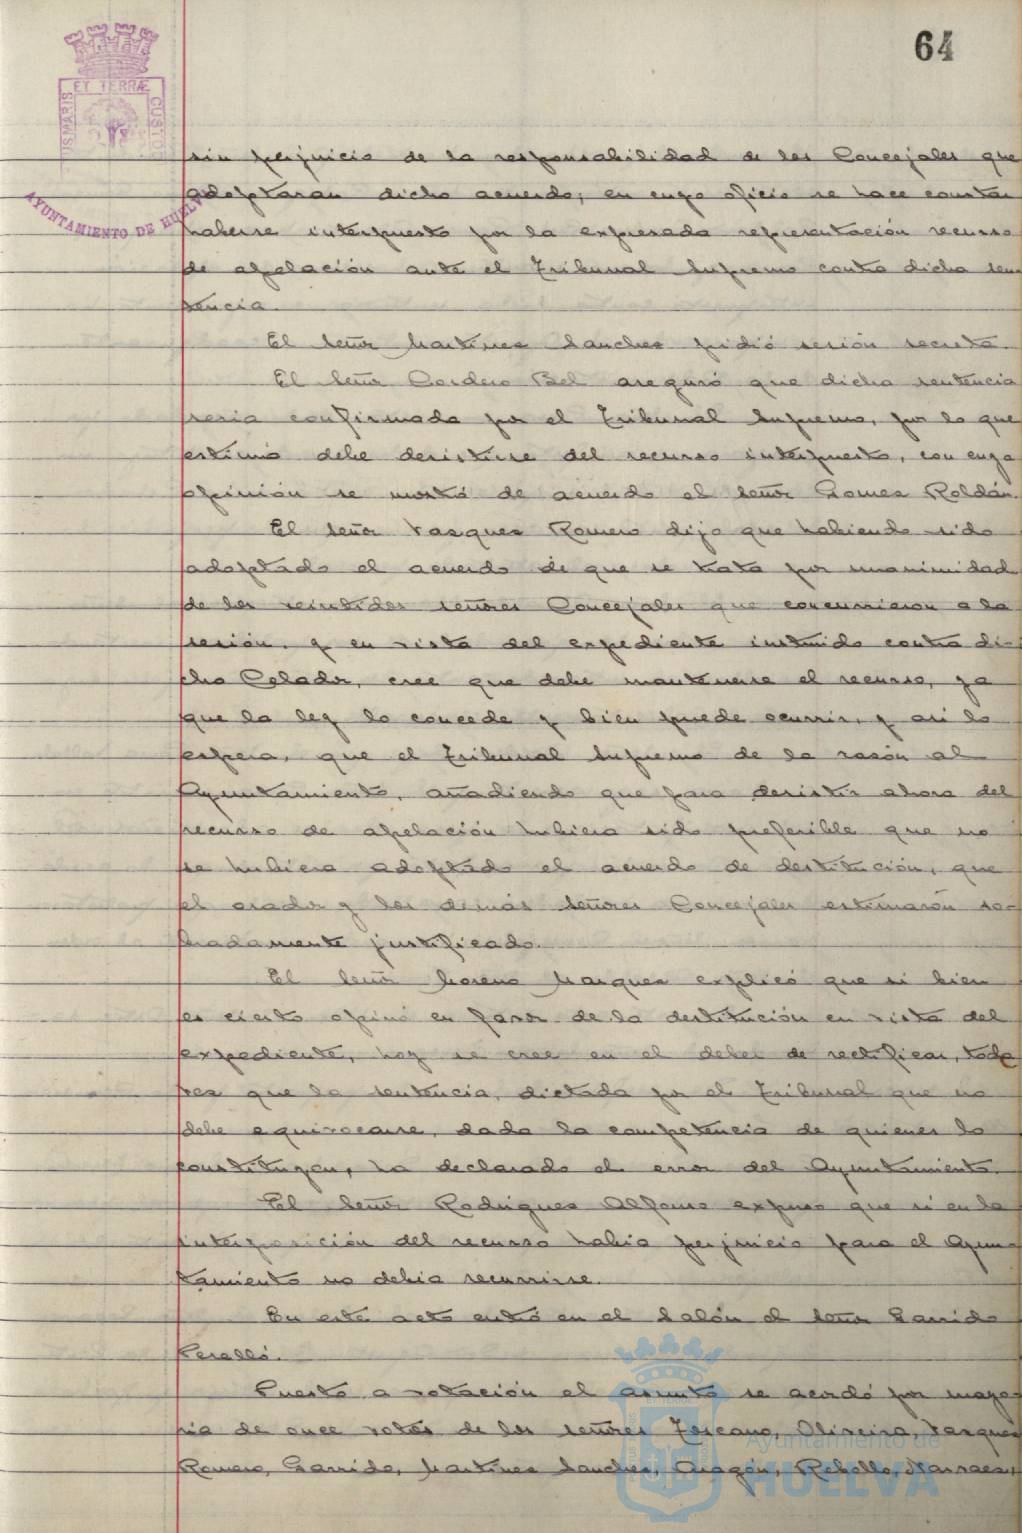 64
ET TERRÆ
AYUNTAMIENTO DE HUELVA
sin perjuicio de la responsabilidad de los Concejales que
adoptaran dicho acuerdo; en cuyo oficio se hace constar
haberse interpuesto por la expresada representación recurso
de apelación ante el Tribunal Supremo contra dicha sen-
tencia.
El Señor Martínez Sanchez pidió sesión secreta.
El Señor Cordero Bel aseguró que dicha sentencia
sería confirmada por el Tribunal Supremo, por lo que
estimó debe desistirse del recurso interpuesto, con cuya
opinión se mostró de acuerdo el Señor Gomez Roldán.
El Señor Vazquez Romero dijo que habiendo sido
adoptado el acuerdo de que se trata por unanimidad
de los reunidos señores Concejales que concurrieron a la
sesión, y en vista del expediente instruido contra di-
cho Celador, cree que debe mantenerse el recurso, ya
que la ley lo concede y bien puede ocurrir, y así lo
espera, que el Tribunal Supremo de la razón al
Ayuntamiento, añadiendo que para desistir ahora del
recurso de apelación hubiera sido preferible que no
se hubiera adoptado el acuerdo de destitución, que
el orador y los demás Señores Concejales estimaron so-
bradamente justificado.
El Señor Moreno Marquez explicó que si bien
es cierto opinó en favor de la destitución en vista del
expediente, hoy se cree en el deber de rectificar, toda
vez que la sentencia, dictada por el Tribunal que no
debe equivocarse, dada la competencia de quienes lo
constituyen, ha declarado el error del Ayuntamiento.
El Señor Rodriguez Alfonso expuso que si en la
interposición del recurso había perjuicio para el Ayun-
tamiento no debía recurrirse.
En este acto entró en el Salón el Señor Garrido
Perelló.
Puesto a votación el asunto se acordó por mayo-
ria de once votos de los señores Toscano, Oliveira, Vazquez
Romero, Garrido, Martínez Sanchez, Aragón, Rebollo, Narraez,
Ayuntamiento de
HUELVA